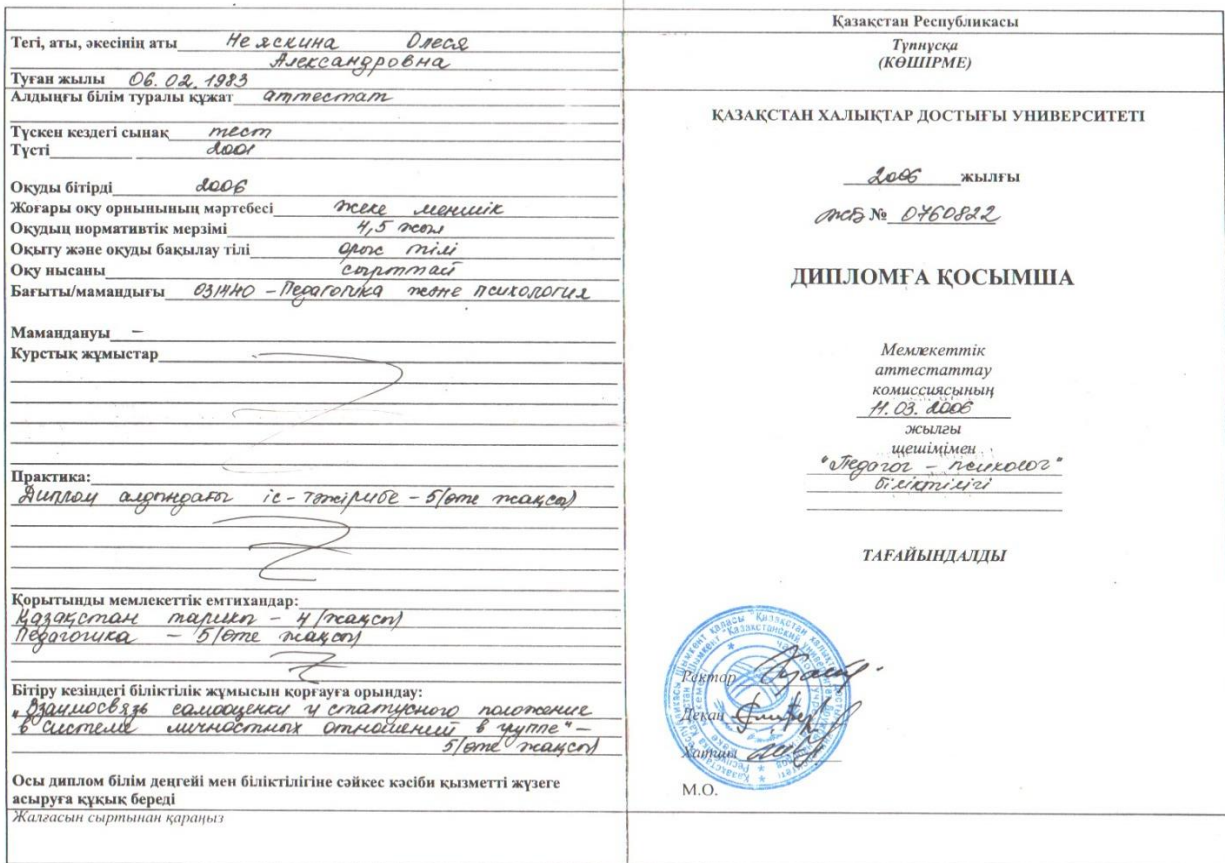 Тегі, аты, әкесінің аты Неяскина Олеся
Александровна
Туған жылы 06.02.1983
Алдыңғы білім туралы құжат аттестат
Түскен кездегі сынақ тест
Түсті 2001
Оқуды бітірді 2006
Жоғары оқу орнынының мәртебесі жеке меншік
Оқудың нормативтік мерзімі 4,5 жыл
Оқыту және оқуды бақылау тілі орыс тілі
Оқу нысаны сырттай
Бағыты/мамандығы 031440 - Педагогика және психология
Мамандануы -
Курстық жұмыстар
Практика:
Диплом алдындағы іс-тәжірибе - 5 (өте жақсы)
Қорытынды мемлекеттік емтихандар:
Қазақстан тарихы - 4 (жақсы)
Педагогика - 5 (өте жақсы)
Бітіру кезіндегі біліктілік жұмысын қорғауға орындау:
"Взаимосвязь самооценки и статусного положение
в системе личностных отношений в группе" -
5 (өте жақсы)
Осы диплом білім деңгейі мен біліктілігіне сәйкес кәсіби қызметті жүзеге
асыруға құқық береді
Жалғасын сыртынан қараңыз
Қазақстан Республикасы
Түпнұсқа
(КӨШІРМЕ)
ҚАЗАҚСТАН ХАЛЫҚТАР ДОСТЫҒЫ УНИВЕРСИТЕТІ
2006 жылғы
ЖБ № 0760822
ДИПЛОМҒА ҚОСЫМША
Мемлекеттік
аттестаттау
комиссиясының
11.03.2006
жылғы
щешімімен
"Педагог - психолог"
біліктілігі
ТАҒАЙЫНДАЛДЫ
Ректор
Декан
Хатшы
М.О.